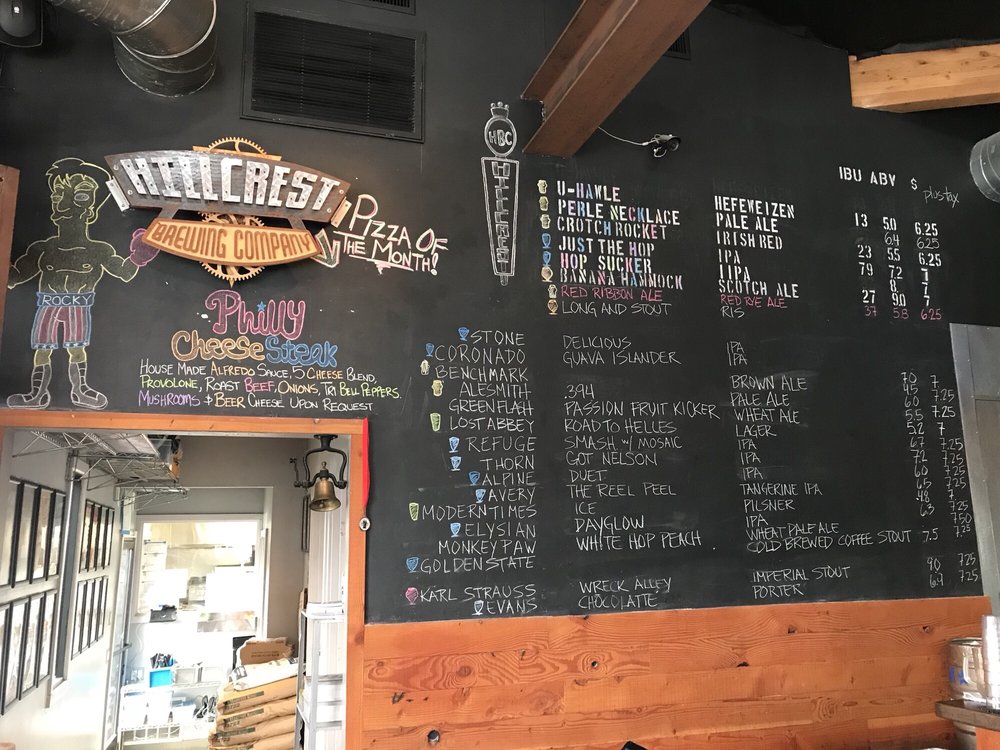 HILLCREST
BREWING COMPANY
PIZZA OF
THE MONTH!
ROCKY
Philly
Cheese Steak
HOUSE MADE ALFREDO SAUCE, 5 CHEESE BLEND,
PROVOLONE, ROAST BEEF, ONIONS, TRI BELL PEPPERS.
MUSHROOMS & BEER CHEESE UPON REQUEST
HBC
IBU ABV $ plus tax
U-HAWLE HEFEWEIZEN 13 5.0 6.25
PERLE NECKLACE PALE ALE 6.4 6.25
CROTCH ROCKET IRISH RED 23 5.5 6.25
JUST THE HOP IPA 79 7.2 7
HOP SUCKER IIPA 8. 7
BANANA HAMMOCK SCOTCH ALE 27 9.0 7
RED RIBBON ALE RED RYE ALE 37 5.8 6.25
LONG AND STOUT RIS
STONE DELICIOUS IPA
CORONADO GUAVA ISLANDER IPA
BENCHMARK BROWN ALE
ALESMITH .394 PALE ALE
GREEN FLASH PASSION FRUIT KICKER WHEAT ALE
LOST ABBEY ROAD TO HELLES LAGER
REFUGE SMASH W/ MOSAIC IPA
THORN GOT NELSON IPA
ALPINE DUET IPA
AVERY THE REEL PEEL TANGERINE IPA
MODERN TIMES ICE PILSNER
ELYSIAN DAYGLOW IPA
MONKEY PAW WHITE HOP PEACH WHEAT PALE ALE
GOLDEN STATE COLD BREWED COFFEE STOUT 7.5
KARL STRAUSS WRECK ALLEY IMPERIAL STOUT 90 7.25
EVANS CHOCOLATTE PORTER 6.9 7.25